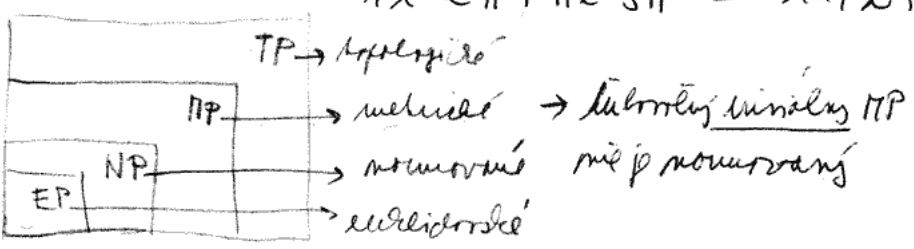 TP → topologické
MP → metrické → ľubovoľný triviálny MP
NP → normované nie je normovaný
EP → euklidovské